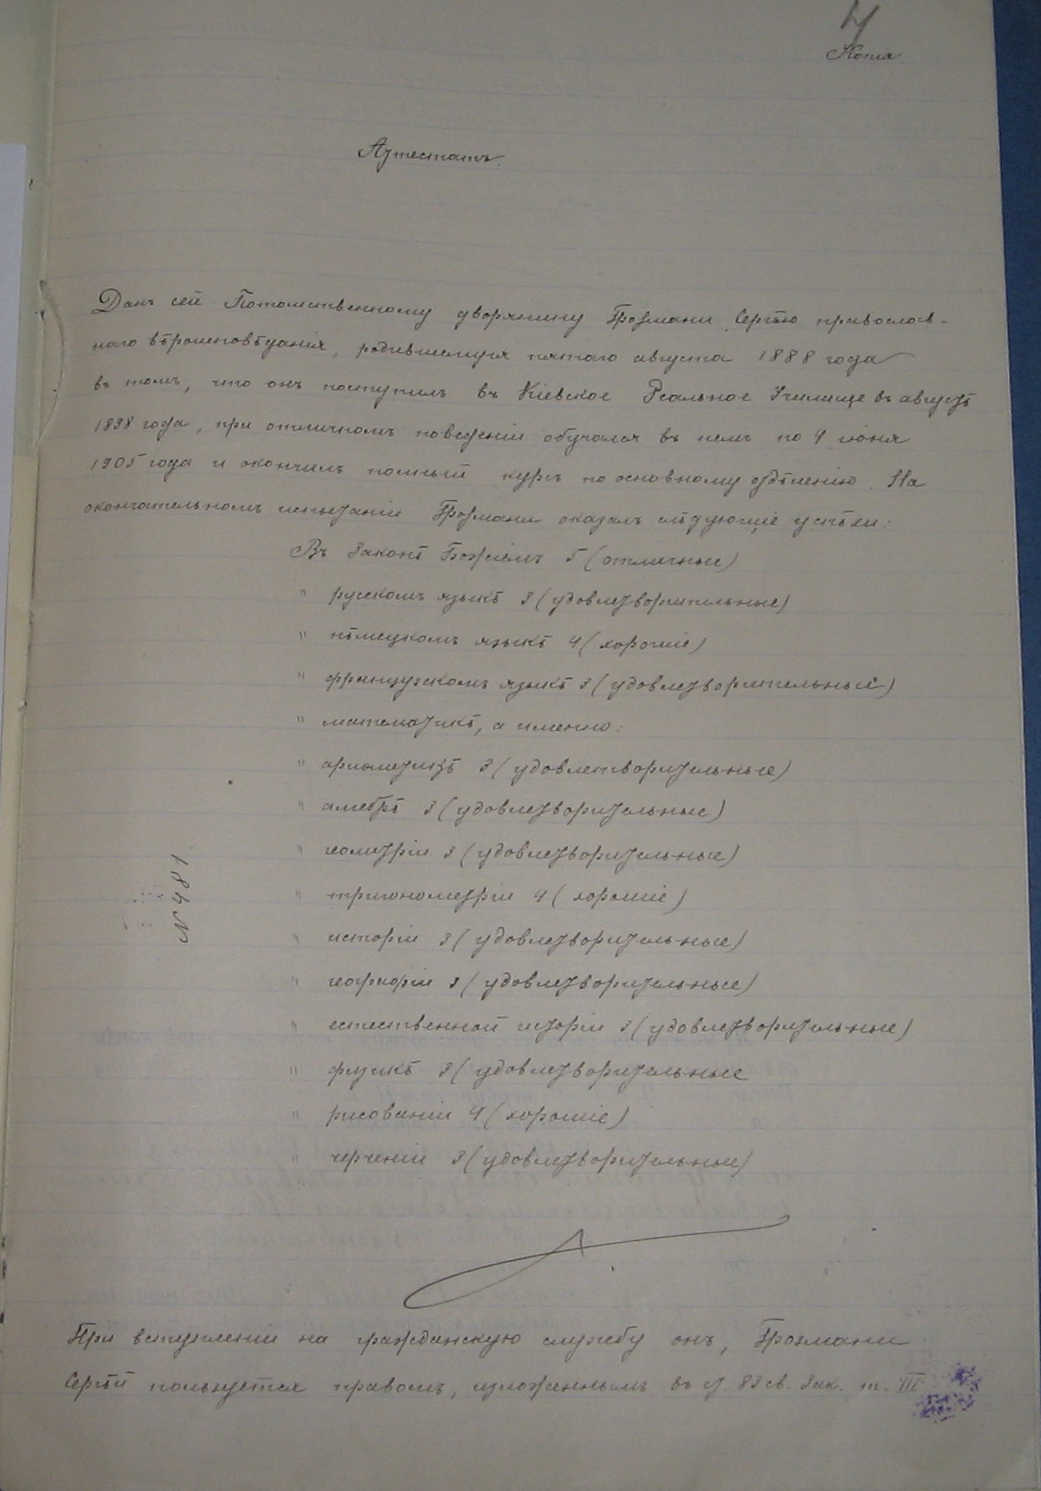 4
Копія
Аттестатъ.
Данъ сей Потомственному дворянину Грозмани Сергѣю православ-
наго вѣроисповѣданія, родившемуся пятаго августа 1888 года
въ томъ, что онъ поступилъ въ Кіевское Реальное Училище въ августѣ
1898 года, при отличномъ поведеніи обучался въ немъ по 4 іюня
1905 года и окончилъ полный курсъ по основному отдѣленію. На
окончательномъ испытаніи Грозмани оказалъ слѣдующіе успѣхи:
Въ Законѣ Божіемъ 5 (отличные)
" русскомъ языкѣ 3 (удовлетворительные)
" нѣмецкомъ языкѣ 4 (хорошіе)
" французскомъ языкѣ 3 (удовлетворительные)
" математикѣ, а именно:
" ариѳметикѣ 3 (удовлетворительные)
" алгебрѣ 3 (удовлетворительные)
" геометріи 3 (удовлетворительные)
" тригонометріи 4 (хорошіе)
" исторіи 3 (удовлетворительные)
" географіи 3 (удовлетворительные)
" естественной исторіи 3 (удовлетворительные)
" физикѣ 3 (удовлетворительные
" рисованіи 4 (хорошіе)
" черченіи 3 (удовлетворительные)
№ 481
При вступленіи на гражданскую службу онъ, Грозмани
Сергѣй пользуется правомъ, изложеннымъ въ ст. 83 св. Зак. т. III